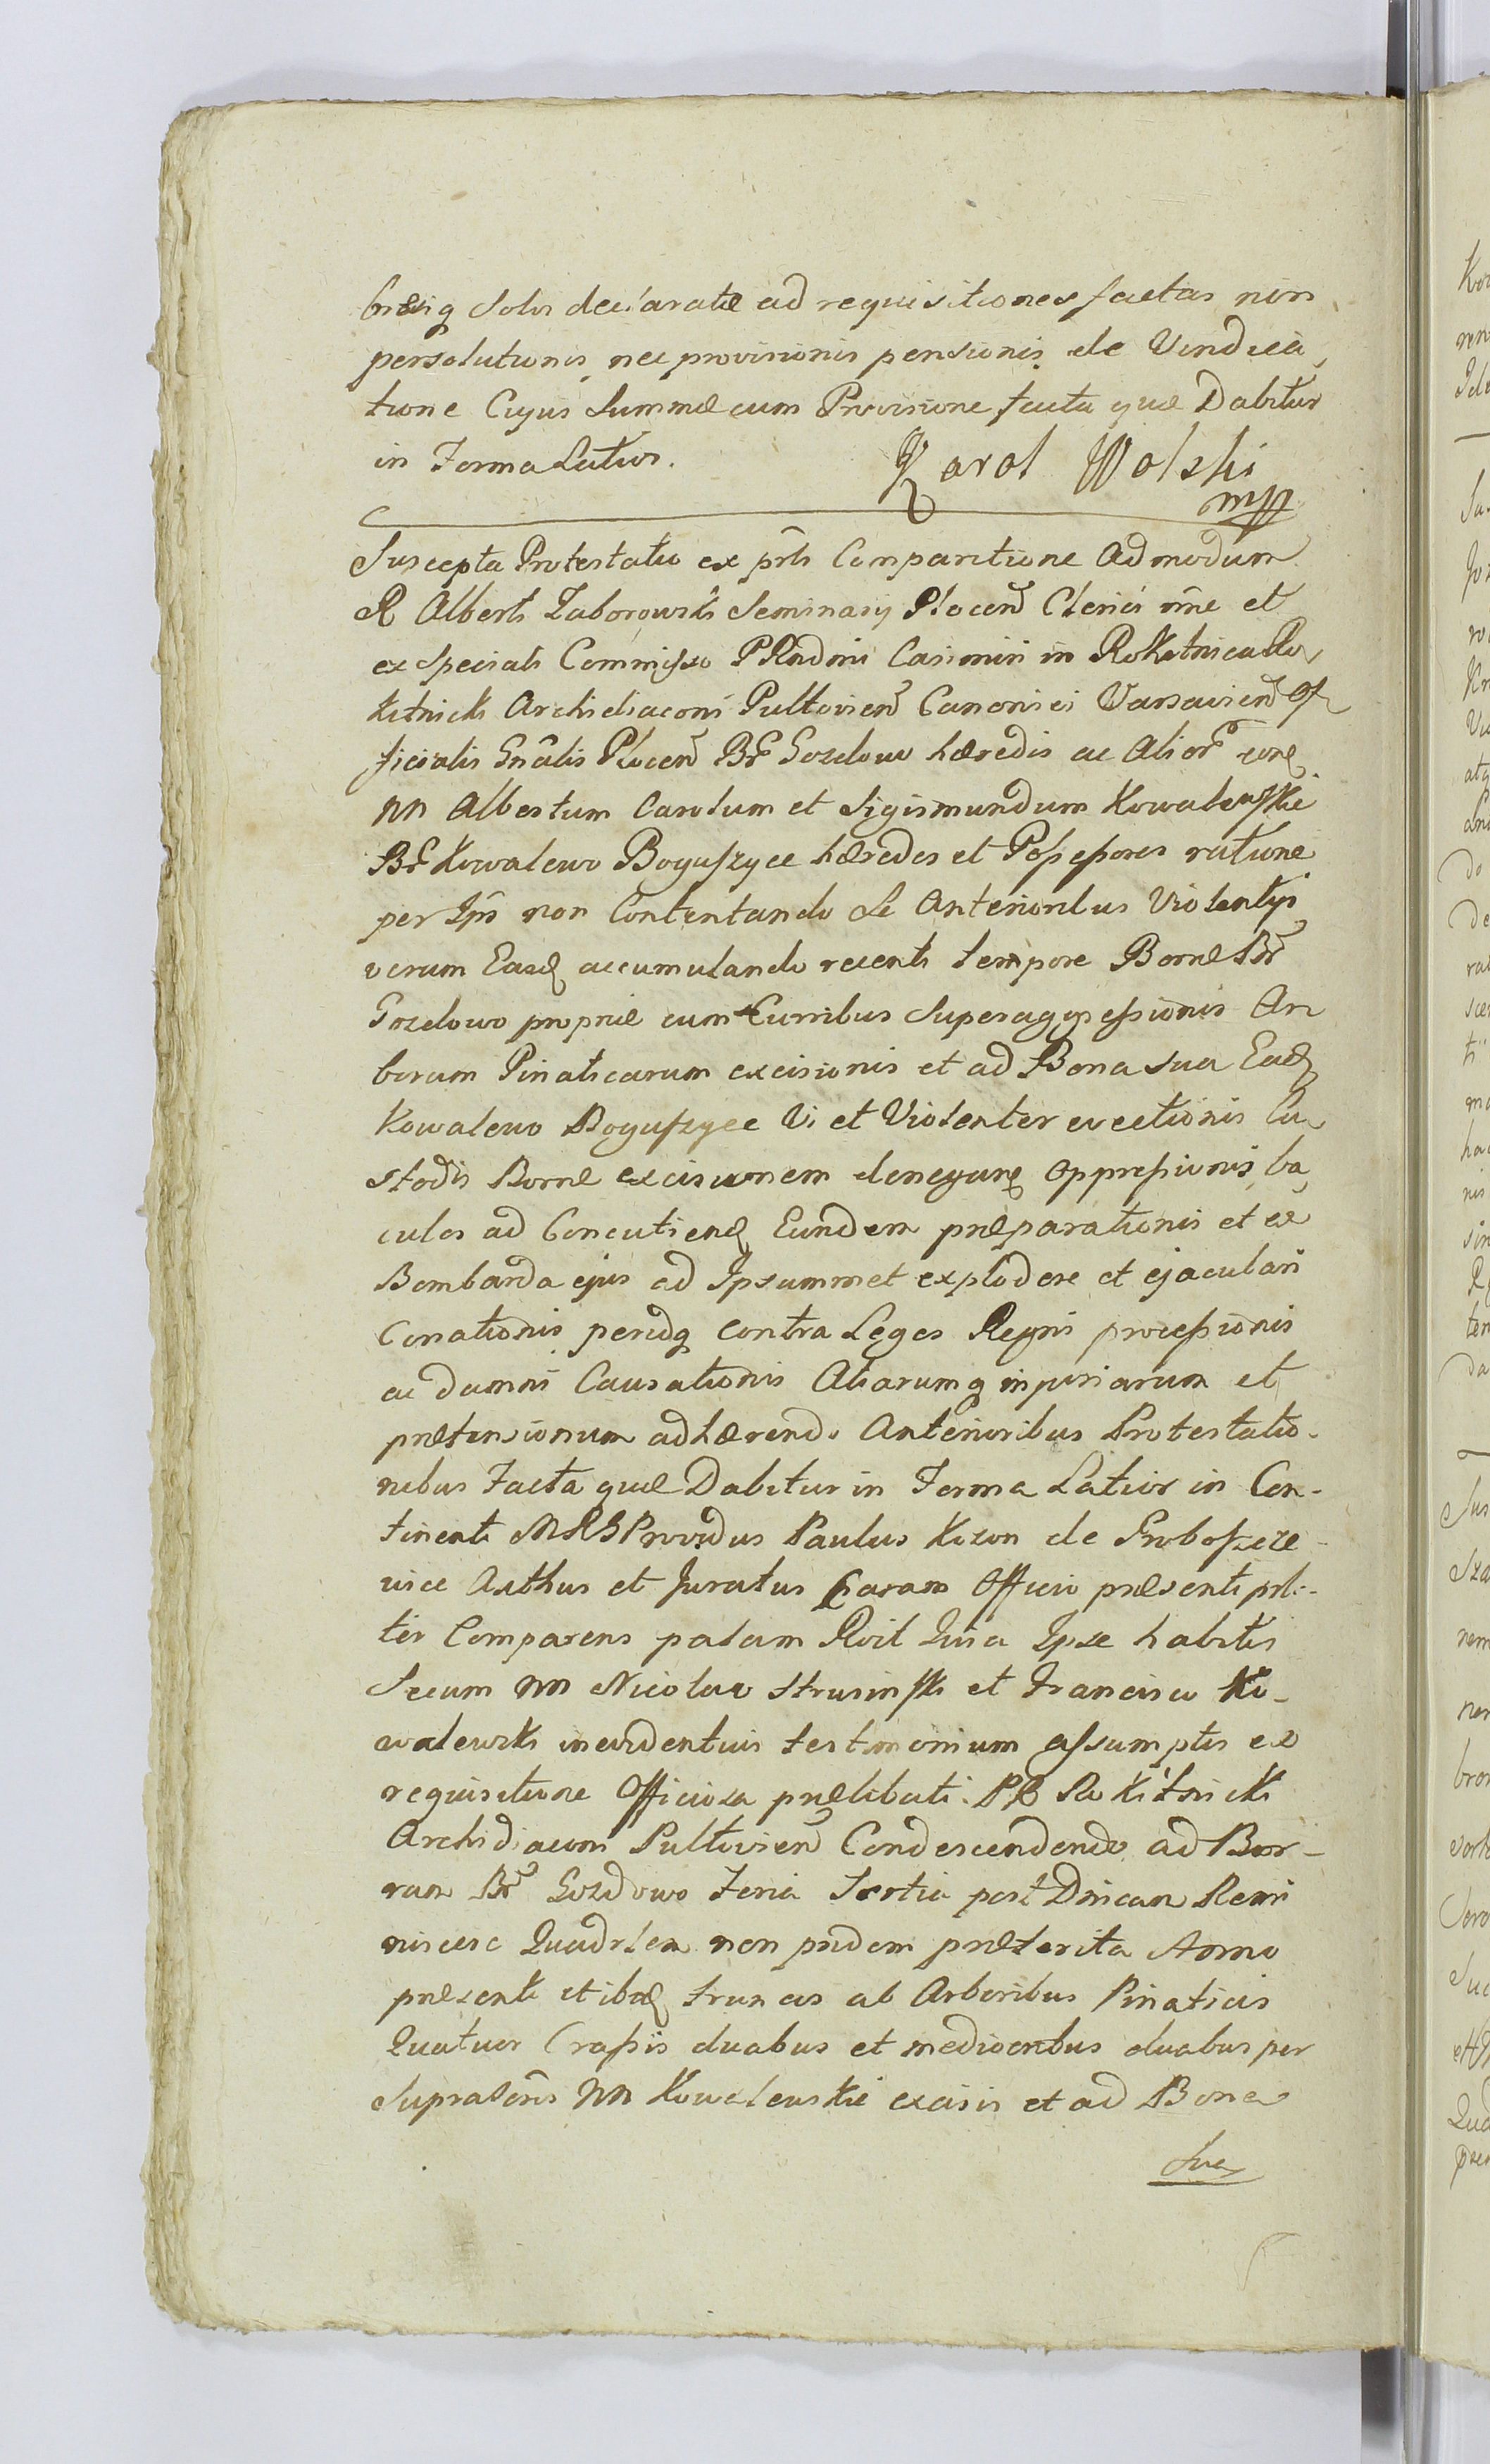 solvi declaratæ ad requisitiones factas non
persolutionis nec provisionis pensionis de Vindica
tione Cujus Summæ cum Provisione facta quæ Dabitur
in Forma Latior.
Karol Wolski
mpp
Suscepta Protestatio ex prti Comparitione Admodum
R Alberti Zaborowski Seminarij Plocen Clerici nne et
ex speciali Commisso PRndmi Casimiri in Rokitnica Ro
kitnicki Archidiaconi Pultovien Canonici Varsavien Of
ficialis Gnalis Plocen Br Gozdowo hæredis ac Alior
MM Albertum Carolum et Sigismundum Kowalewskie
Br Kowalewo Boguszyce hæredes et Possessores ratione
per Ips non Contentando se Anterioribus Violentijs
verum Easd accumulando recenti tempore Borræ Br
Gozdowo propriæ cum Curribus Superaggressionis Ar
borum Pinaticarum excisionis et ad Bona sua Ead
Kowalewo Boguszyce Vi et Violenter evectionis Cu
stodis Borræ excisionem denegan oppressionis, ba
culos ad Concutiend Eundem præparationis et ex
Bombarda ejus ad Ipsummet explodere et ejaculari
Conationis peridq contra Leges Regni processionis
ac damni Causationis Aliarumq injuriarum et
prætensionum adhærendo Anterioribus Protestatio-
nibus Facta quæ Dabitur in Forma Latior in Con-
tinenti MRG Providus Paulus Kozon de Proboszcze
vice Authus et Juratus Coram Officio præsenti prli-
ter Comparens palam Rcit Quia Ipse habitis
Secum MM Nicolao Strusinski et Francisco Ko-
walewski in evidentius testimonium assumptis ex
requisitione Officiosa prælibati PR Rokitnicki
Archidiaconi Pultovien Condescendendo ad Bor-
ram Br Gozdowo Feria Tertia post Dnicam Remi
niscere Quadrlem non pridem præterita Anno
præsenti et ibid truncis ab Arboribus Pinaticis
Quatuor Crassis duabus et mediocribus duabus per
Supratos MM Kowalewskie excisis et ad Bona
Sua